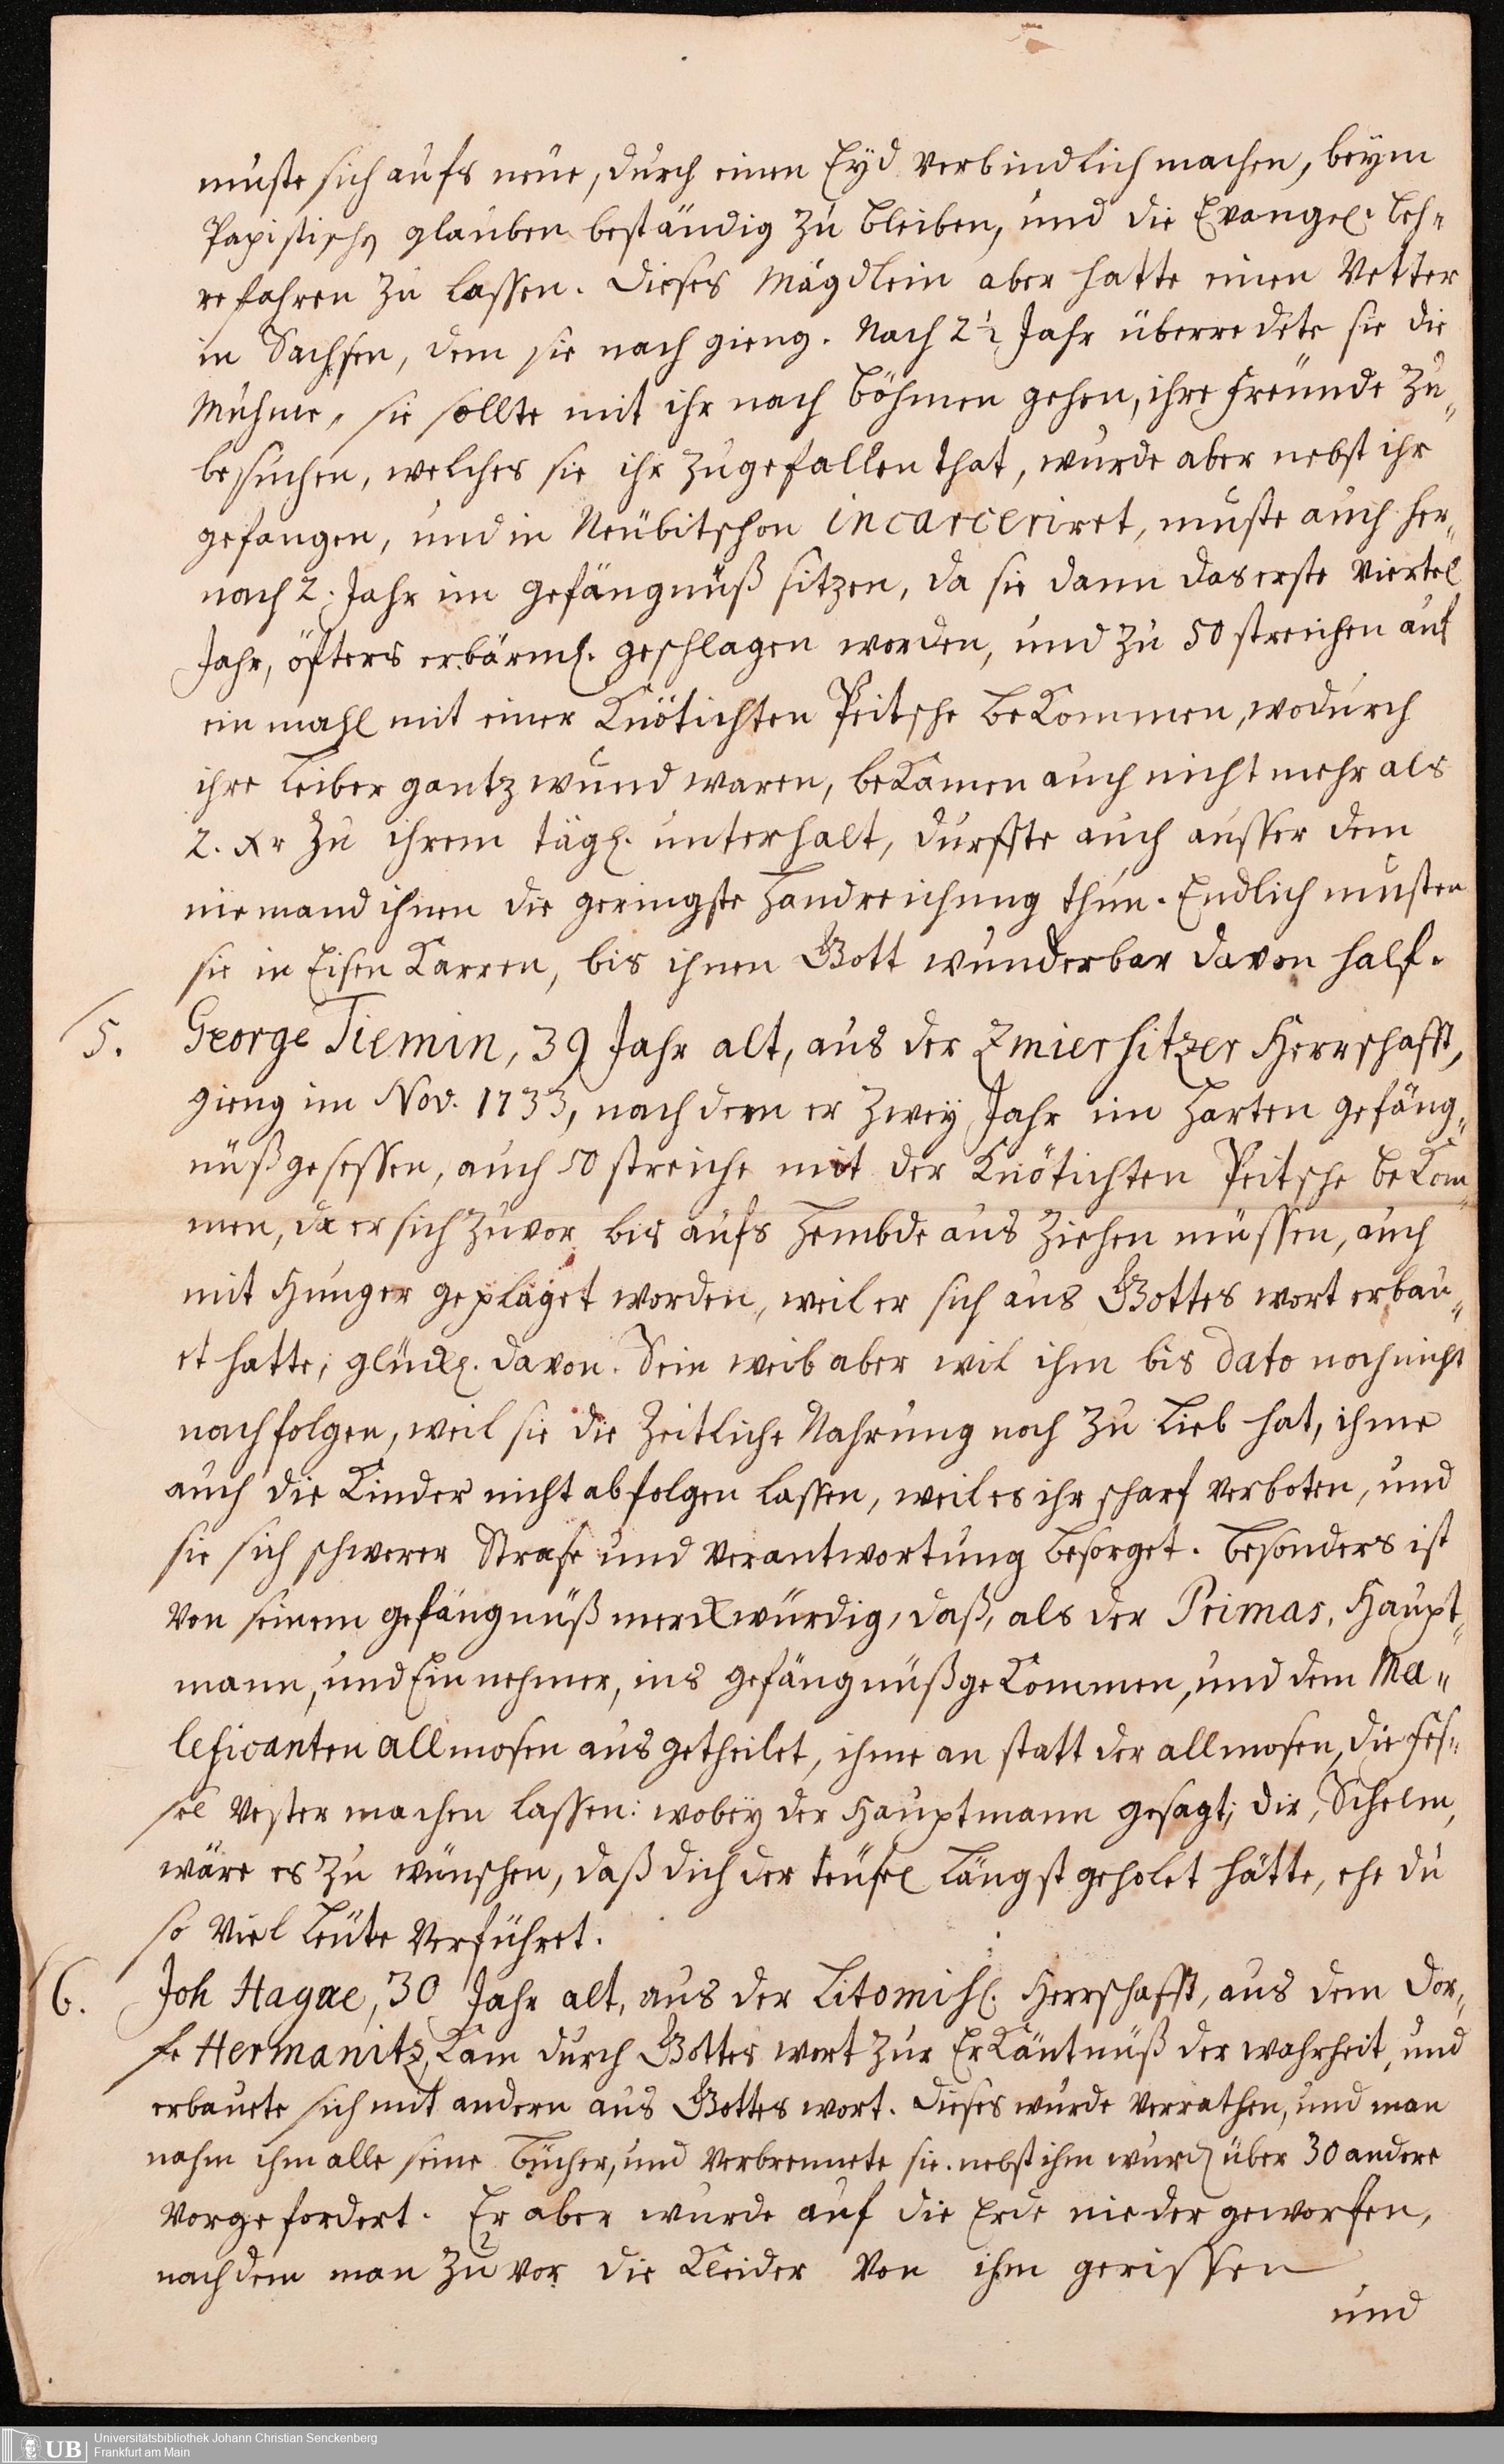 muste sich aufs neue, durch einen Eyd verbindlich machen, beym
Papistischen glauben beständig zu bleiben, und die Evangel. Leh=
re fahren zu lassen. Dieses Mägdlein aber hatte einen Vetter
in Sachsen, dem sie nach gieng. Nach 2½ Jahr überredete sie die
Muhme, sie sollte mit ihr nach Böhmen gehen, ihre Freunde zu„
besuchen, welches sie ihr zugefallen that, wurde aber nebst ihr
gefangen, und in Neübitschon incarceriret, muste auch her„
nach 2. Jahr im gefängnüß sitzen, da sie dann das erste Viertel
Jahr, öfters erbärml. geschlagen worden, und zu 50 streichen auf
ein mahl mit einer Knötichten Peitsche beKommen, wodurch
ihre Leiber gantz wund waren, beKamen auch nicht mehr als
2. Xr zu ihrem tägl. unterhalt, durffte auch ausser dem
niemand ihnen die geringste Handreichung thun. Endlich musten
sie in Eisen Karren, bis ihnen Gott wunderbar davon half.
5. George Tiemin, 39 Jahr alt, aus der Zmierhitzer Herrschafft,
gieng im Nov. 1733, nach dem er zwey Jahr im Harten gefäng„
nüß gesessen, auch 50 streiche mit der Knötichten Peitsche beKom„
men, da er sich zuvor bis aufs Hembde aus ziehen müssen, auch
mit Hunger geplaget worden, weil er sich aus Gottes wort erbau„
et hatte; glückl. davon. Sein weib aber wil ihm bis dato noch nicht
nachfolgen, weil sie die Zeitliche Nahrung noch zu lieb hat, ihme
auch die Kinder nicht abfolgen lassen, weil es ihr scharf verboten, und
sie sich schwerer Strafe und Verantwortung besorget. Besonders ist
von seinem gefängnüß merckwürdig, daß, als der Primas, Haupt„
mann, und Einnehmer, ins gefängnüß geKommen, und dem Ma„
leficanten allmosen ausgetheilet, ihme an statt der allmosen, die Fes„
sel vester machen lassen: wobey der Hauptmann gesagt; dir, Schelm,
wäre es zu wünschen, daß dich der teüfel längst geholet hätte, ehe du
so viel Leüte verführet.
6. Joh Hagae, 30 Jahr alt, aus der Litomihl. Herrschafft, aus dem Dor„
fe Hermanitz, Kam durch Gottes wort zur ErKäntnüß der wahrheit, und
erbauete sich mit andern aus Gottes wort. Dieses wurde verrathen, und man
nahm ihm alle seine Bücher, und verbrennete sie. nebst ihm wurden über 30 andere
vorgefordert. Er aber wurde auf die Erde nieder geworfen,
nachdem man zuvor die Kleider von ihm gerissen
und
UB Universitätsbibliothek Johann Christian Senckenberg
Frankfurt am Main